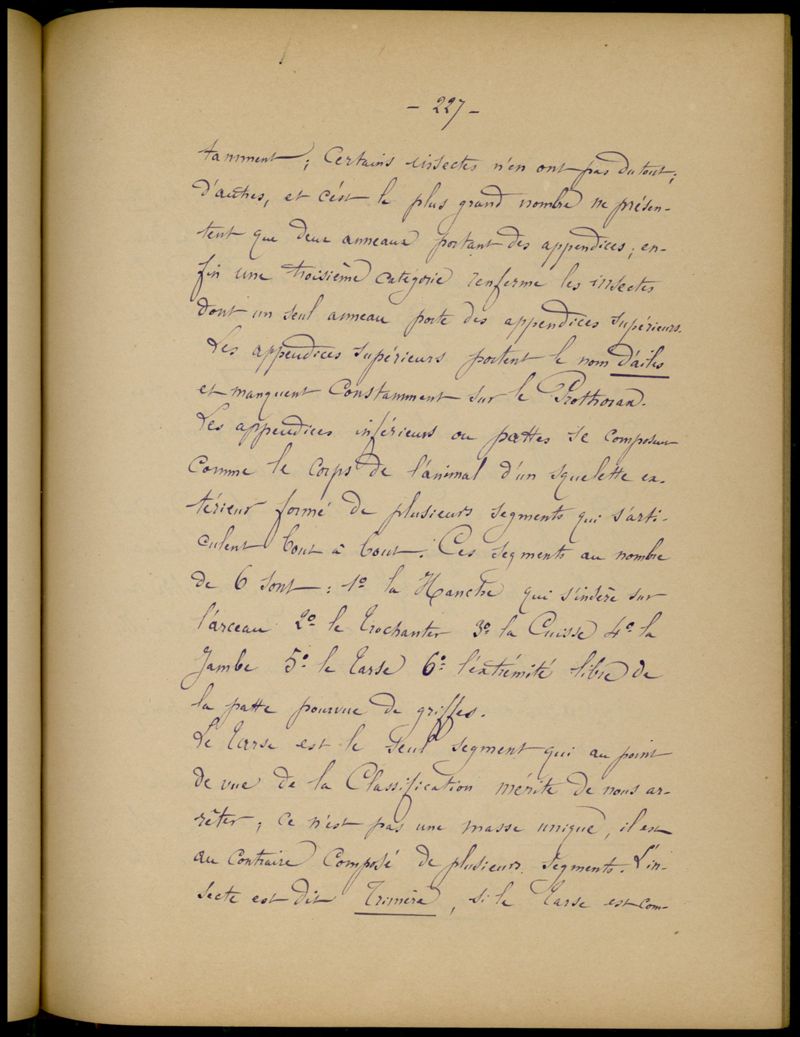 - 227 -
tamment ; Certains insectes n'en ont pas du tout ;
d'autres, et c'est le plus grand nombre ne présen-
tent que deux anneaux portant des appendices ; en-
fin une troisième catégorie renferme les insectes
dont un seul anneau porte des appendices supérieurs.
Les appendices supérieurs portent le nom d'ailes
et manquent Constamment sur le Prothorax.
Les appendices inférieurs ou pattes se composent
comme le corps de l'animal d'un squelette ex-
térieur formé de plusieurs segments qui s'arti-
culent bout à bout. Ces segments au nombre
de 6 sont : 1º la Hanche qui s'insère sur
l'arceau 2º le Trochanter 3º la Cuisse 4º la
Jambe 5º le Tarse 6º l'extrémité libre de
la patte pourvue de griffes.
Le Tarse est le seul segment qui au point
de vue de la Classification mérite de nous ar-
rêter ; ce n'est pas une masse unique, il est
au contraire composé de plusieurs segments. L'in-
secte est dit Trimère, si le Tarse est com-